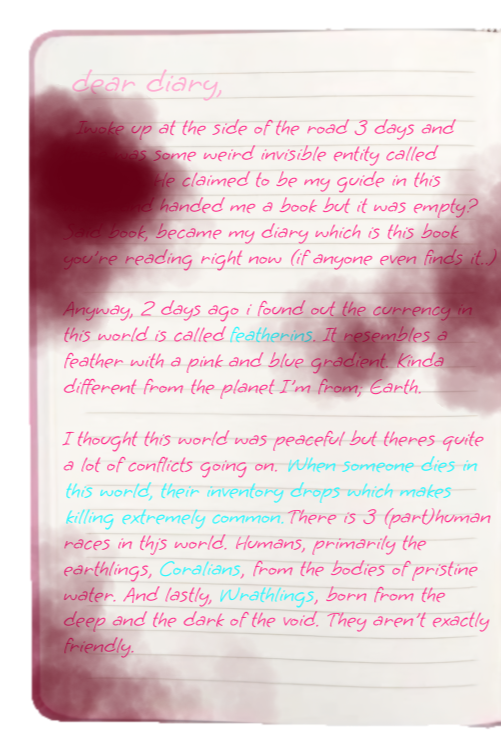 dear diary,
I woke up at the side of the road 3 days and
was some weird invisible entity called
He claimed to be my guide in this
handed me a book but it was empty?
Said book, became my diary which is this book
you're reading right now (if anyone even finds it..)
Anyway, 2 days ago i found out the currency in
this world is called featherins. It resembles a
feather with a pink and blue gradient. Kinda
different from the planet I'm from, Earth.
I thought this world was peaceful but theres quite
a lot of conflicts going on. When someone dies in
this world, their inventory drops which makes
killing extremely common. There is 3 (part)human
races in thjs world. Humans, primarily the
earthlings, Coralians, from the bodies of pristine
water. And lastly, Wrathlings, born from the
deep and the dark of the void. They aren't exactly
friendly.